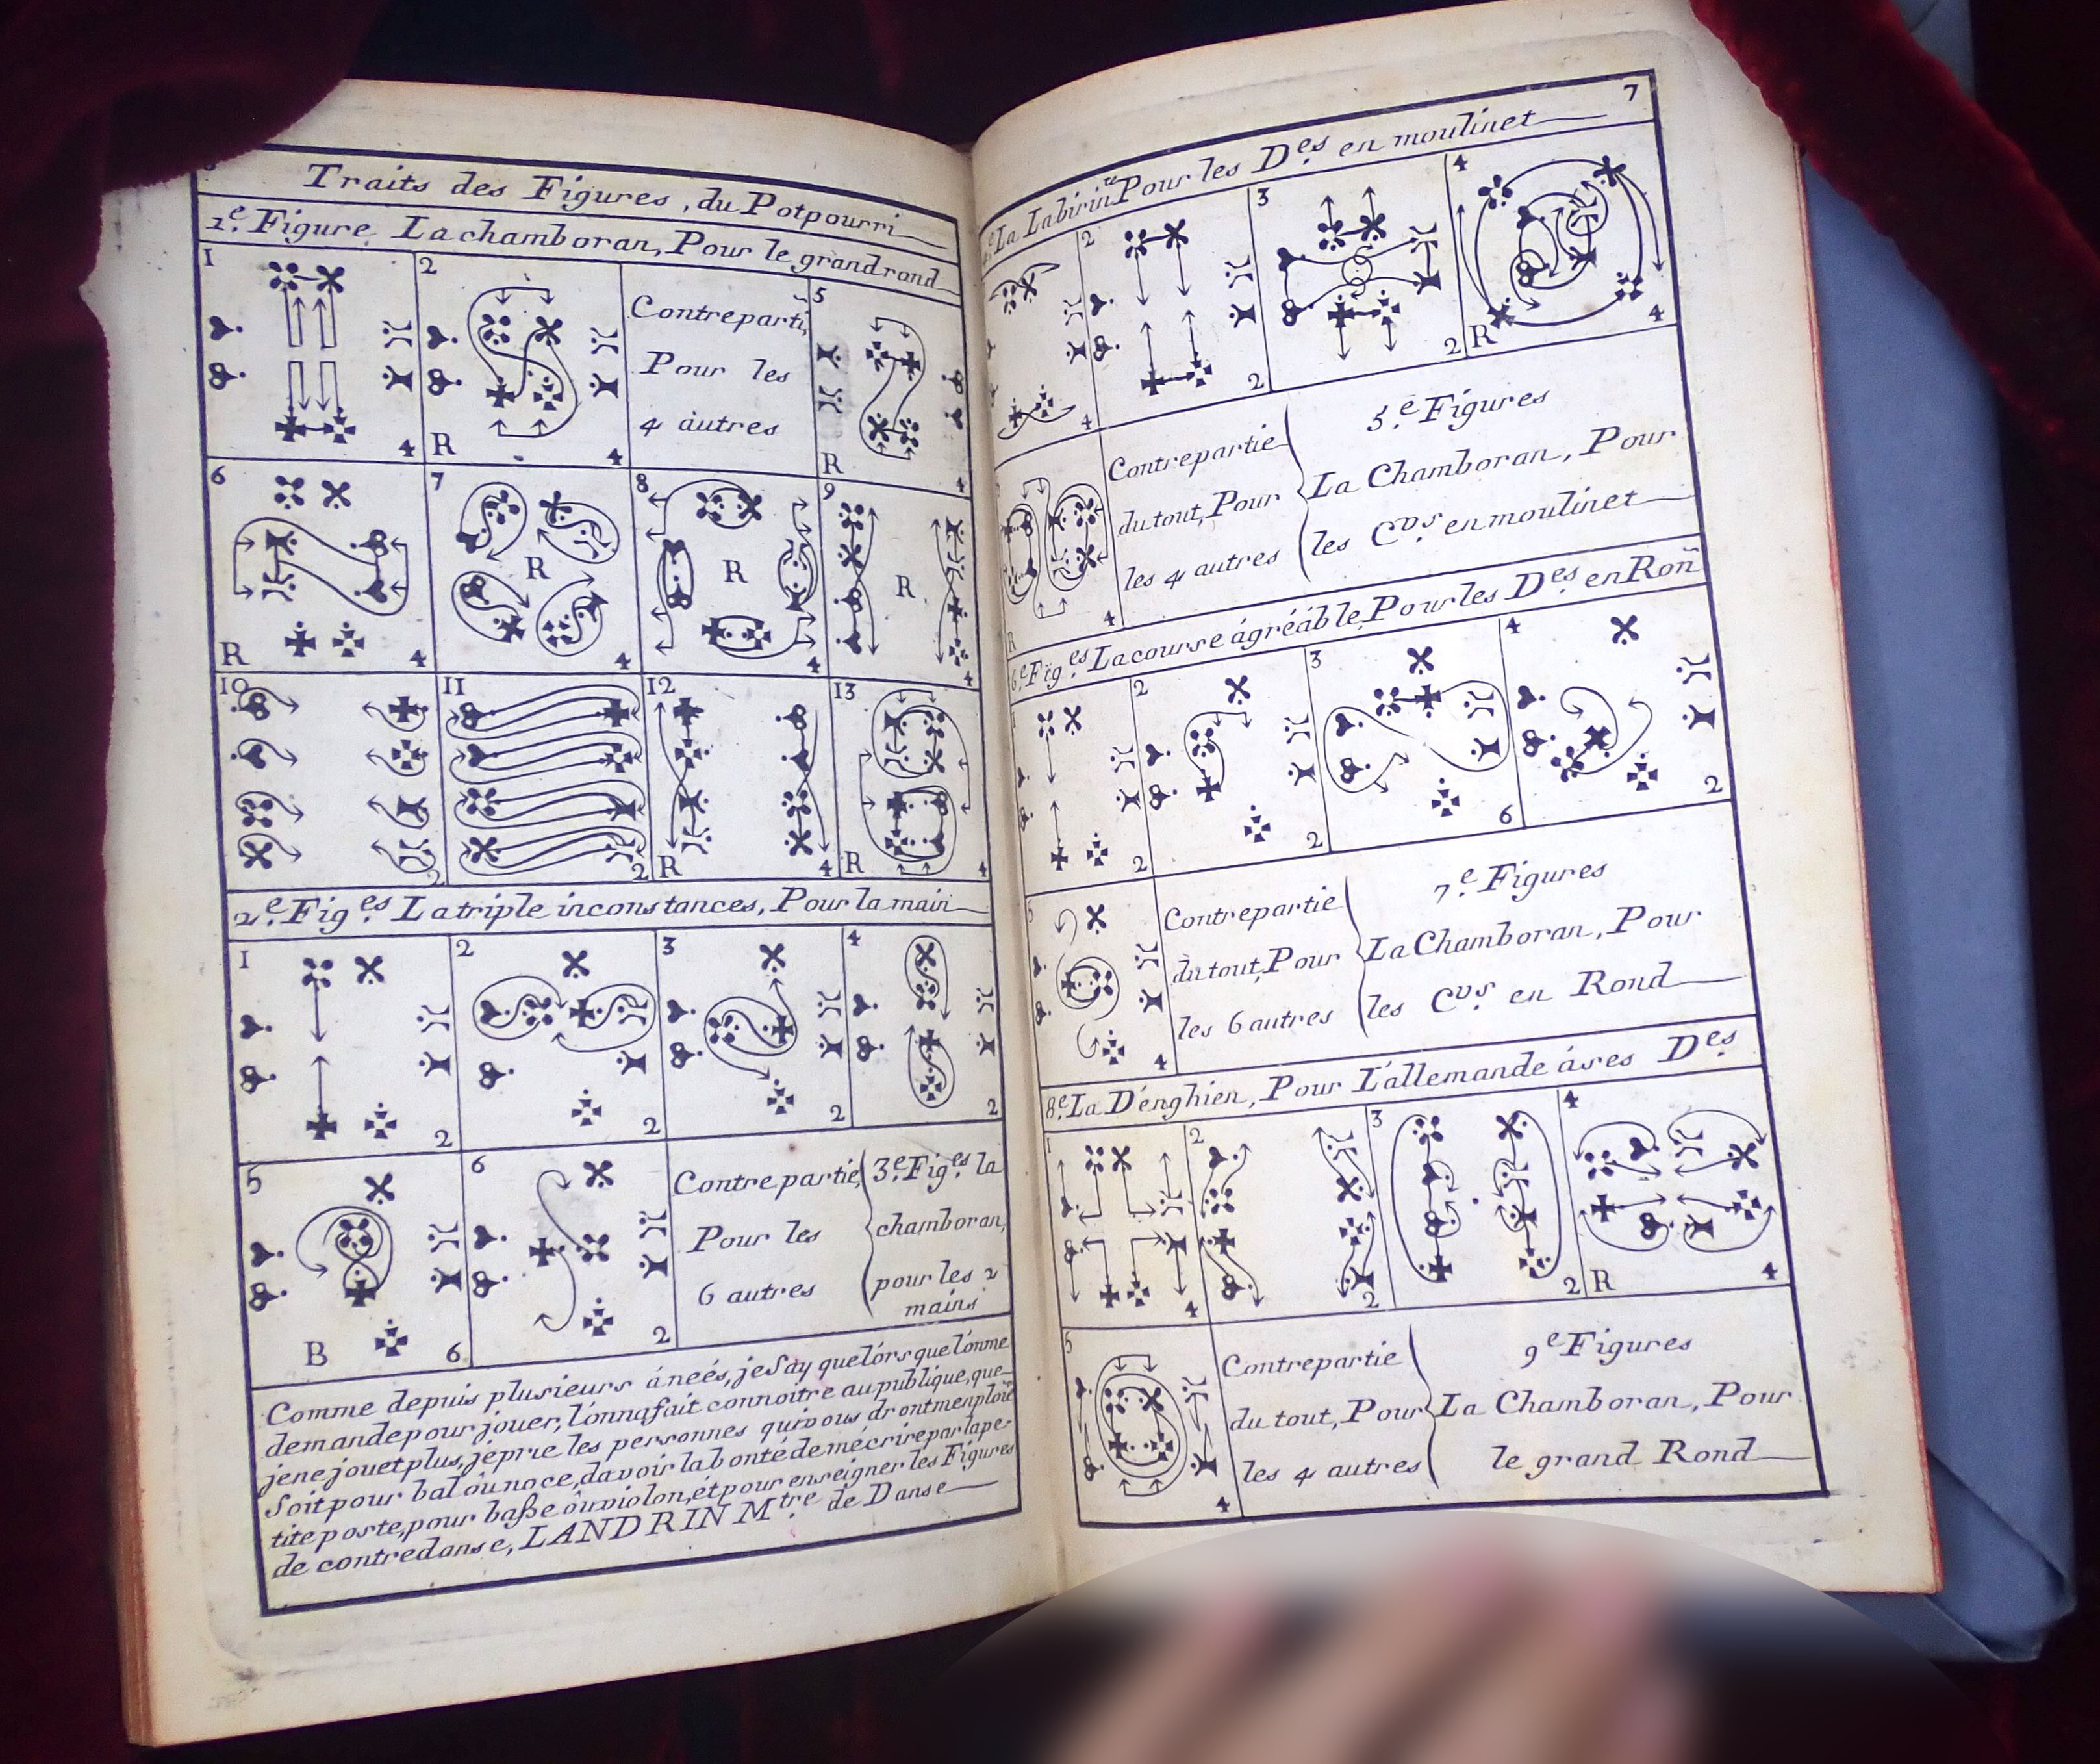 Traits des Figures, du Potpourri
1.e Figure La chamboran, Pour le grand rond
1
4
2
R
4
Contreparti,
Pour les
4 autres
5
R
4
6
R
4
7
R
4
8
R
4
9
R
4
10
2
11
2
12
R
4
13
R
4
2.e Fig.es La triple inconstances, Pour la main
1
2
2
2
3
2
4
2
5
B
6
6
2
Contrepartie,
Pour les
6 autres
3.e Fig.es la
chamboran,
pour les 2
mains
Comme depuis plusieurs áneés, je Say que lórs que lónme
demande pour jouer, lónna fait connoitre au publique, que
je ne jouet plus, jéprie les personnes qui vous dront menploié
Soit pour bal óu noce, davoir la bonté de mécrire par la pe-
tite poste, pour baße óu violon, ét pour enseigner les Figures
de contredanse, LANDRIN M.tre de Danse
7
La Labirinte Pour les D.es en moulinet
4
2
2
3
2
4
R
4
R
4
Contrepartie
du tout, Pour
les 4 autres
5.e Figures
La Chamboran, Pour
les C.vs en moulinet
6.e Fig.es La course ágréáble, Pour les D.es en Roñ
2
2
2
3
6
4
2
5
4
Contrepartie
du tout, Pour
les 6 autres
7.e Figures
La Chamboran, Pour
les C.vs en Rond
8.e La D'énghien, Pour L'allemande áses D.es
1
4
2
2
3
2
4
R
4
5
4
Contrepartie
du tout, Pour
les 4 autres
9.e Figures
La Chamboran, Pour
le grand Rond